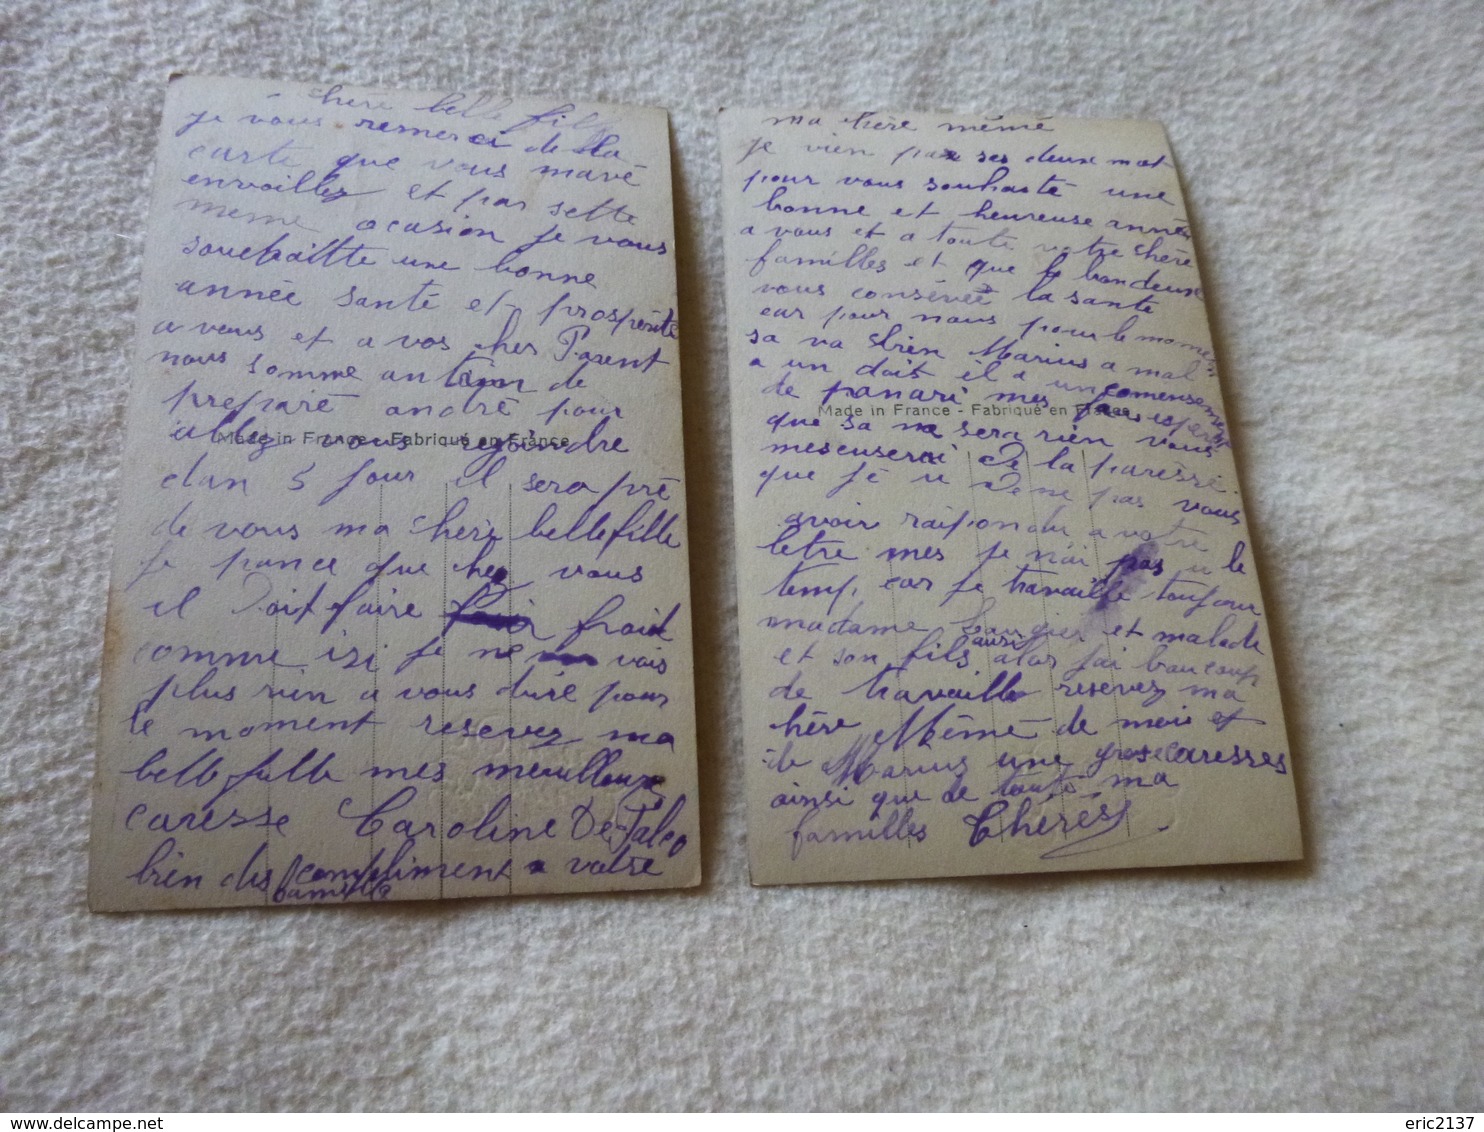 chère belle fille
je vous remerci de la
carte que vous mavé
envoillez et par sette
meme ocasion je vous
souehaitte une bonne
année santé et prospérité
a vous et a vos cher Parent
nous somme an train de
preparé andré pour
allez vous rejoindre
Made in France - Fabriqué en France
dan 5 jour il sera pré
de vous ma chere belle fille
je pance que chez vous
il doit faire froid
comme isi je ne vais
plus rien a vous dire pour
le moment resevez ma
belle fille mes meuilleure
caresse Caroline De
bien des compliment a votre
famille
ma chère mémé
je vien par ses deux mot
pour vous souhaité une
bonne et heureuse année
a vous et a toute votre chère
familles et que le bon deux
vous conséve la santé
car pour nous pour le moment
sa va bien Marius a mal
a un doit il a un comensement
de panari mes jaus esparé
Made in France - Fabriqué en France
que sa ne sera rien vous
mescuserai de la paresse
que jé u de ne pas vous
avoir raipondu a votre
letre mes je nai pas u le
temp, car je travaille toujour
madame et malade
et son fils ausi alor jai baucoup
de travaille resevez ma
hère Mémé de moi et
de Marius une grosse caresses
ainsi que de touté ma
familles Thérés
eric2137